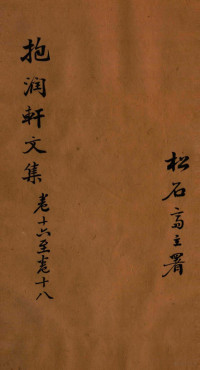 松石斋主署
抱润軒文集 卷十六至卷十八